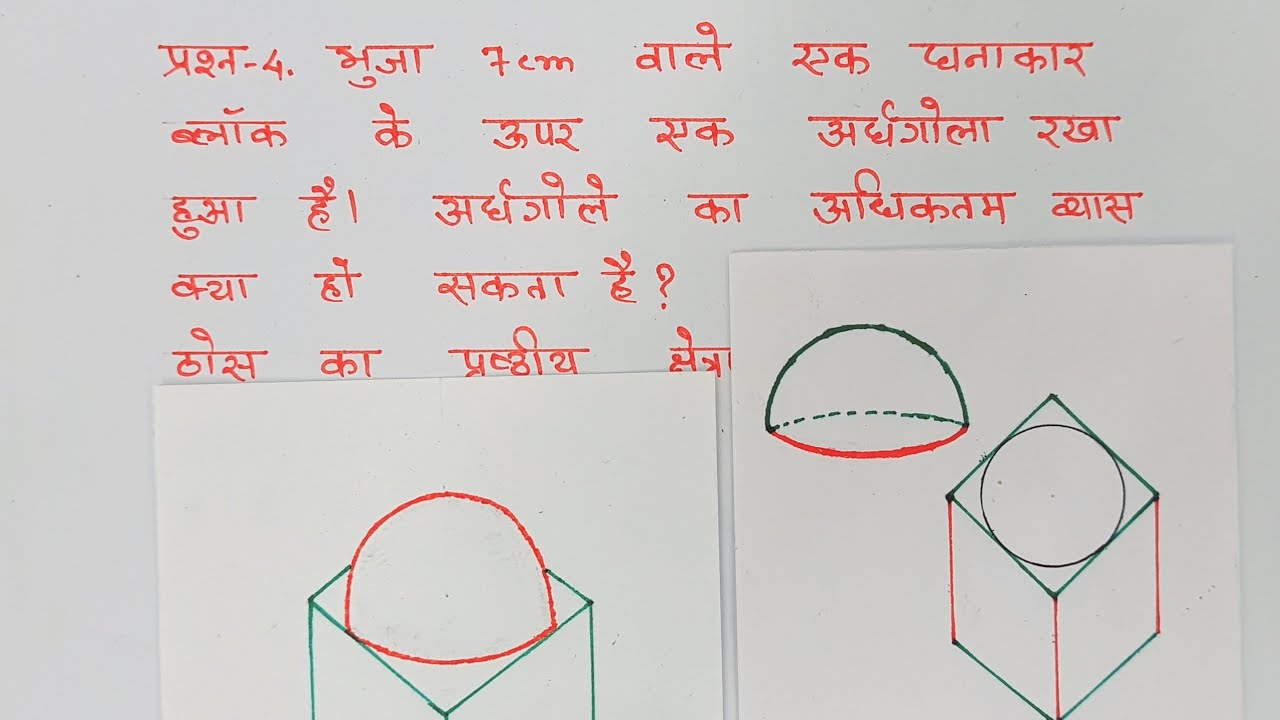 प्रश्न-4. भुजा 7cm वाले एक घनाकार
ब्लॉक के ऊपर एक अर्धगोला रखा
हुआ है। अर्धगोले का अधिकतम व्यास
क्या हो सकता है?
ठोस का प्रष्ठीय